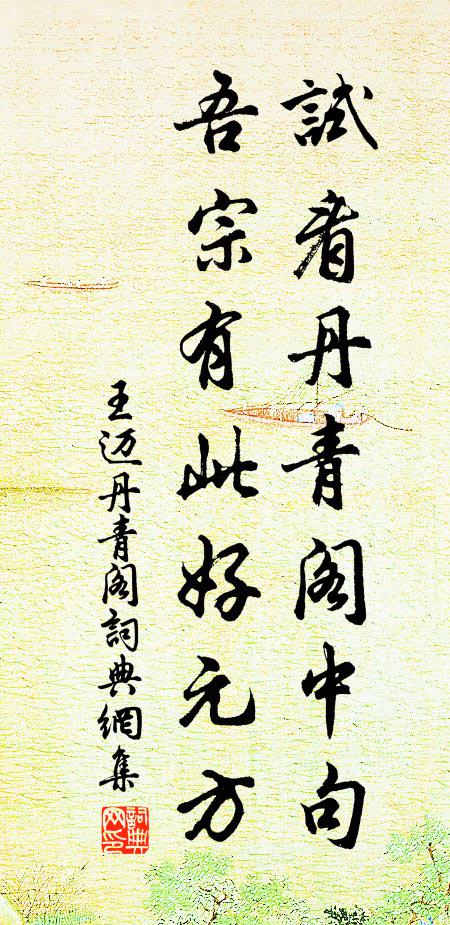 試看丹青閣中句
吾宗有此好元方
王迈丹青阁詞典網集
詞典網印